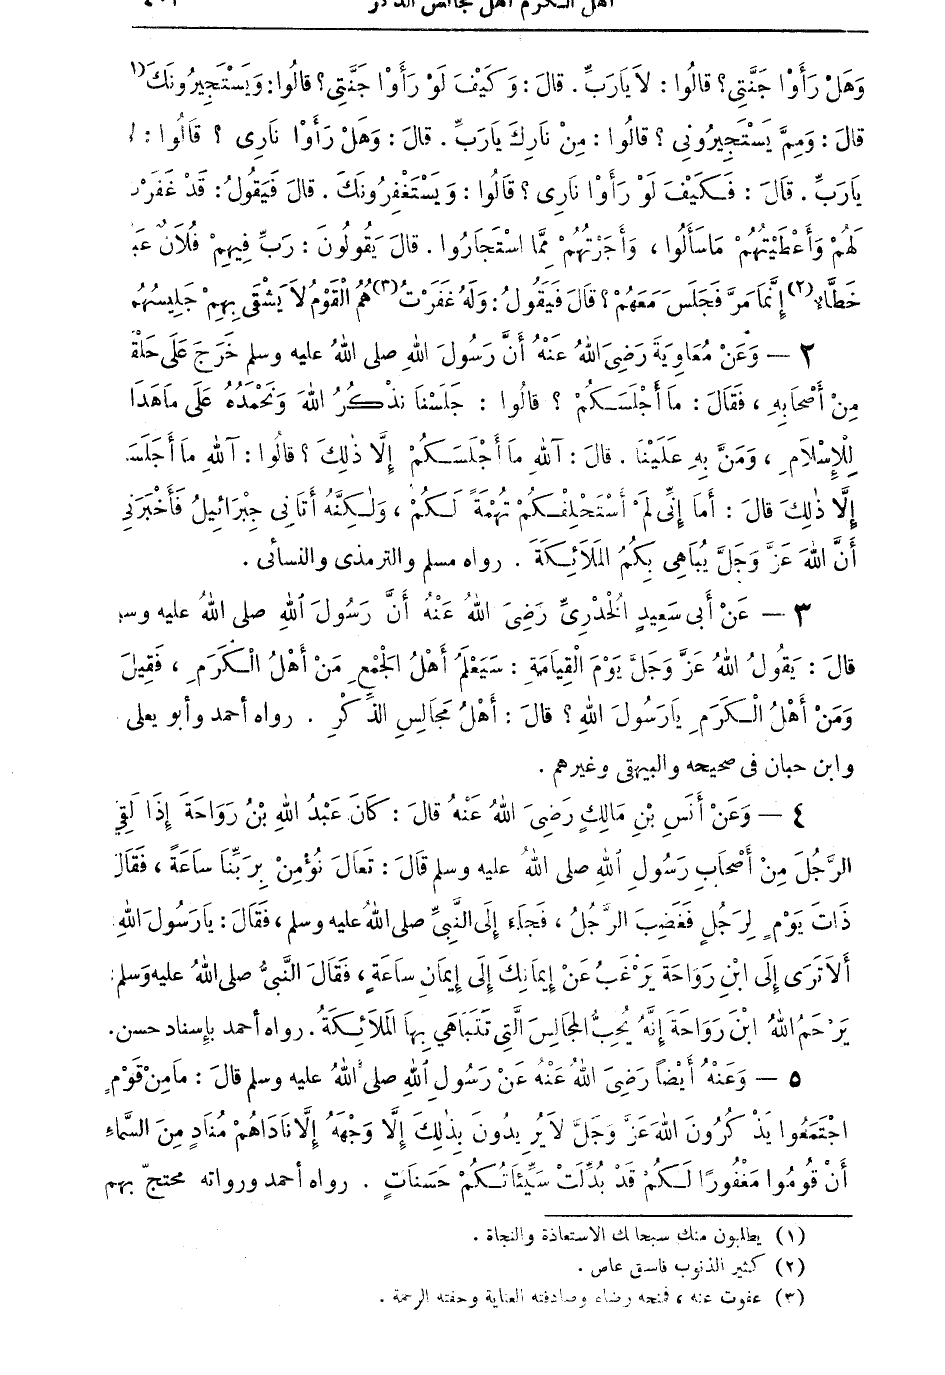 أهل الكرم أهل مجالس الذكر
وَهَلْ رَأَوْا جَنَّتِي؟ قالُوا: لاَ يَارَبِّ. قالَ: وَكَيْفَ لَوْ رَأَوْا جَنَّتِي؟ قالُوا: وَيَسْتَجِيرُونَكَ (١)
قالَ: وَمِمَّ يَسْتَجِيرُونِي؟ قالُوا: مِنْ نَارِكَ يَارَبِّ. قالَ: وَهَلْ رَأَوْا نَارِى؟ قَالُوا:
يَارَبِّ. قَالَ: فَكَيْفَ لَوْ رَأَوْا نَارِى؟ قَالُوا: وَيَسْتَغْفِرُونَكَ. قالَ فَيَقُولُ: قَدْ غَفَرْ
لَهُمْ وَأَعْطَيْتُهُمْ مَاسَأَلُوا، وَأَجَرْتُهُمْ مِمَّا اسْتَجَارُوا. قالَ يَقُولُونَ: رَبِّ فِيهِمْ فُلَانٌ عَبْ
خَطَّاءٌ (٢) إِنَّمَا مَرَّ فَجَلَسَ مَعَهُمْ؟ قالَ فَيَقُولُ: وَلَهُ غَفَرْتُ (٣) هُمُ الْقَوْمُ لاَ يَشْقَى بِهِمْ جَلِيسُهُمْ
٢ — وَعَنْ مُعَاوِيَةَ رَضِىَ اللهُ عَنْهُ أَنَّ رَسُولَ اللهِ صلى اللهُ عليه وسلم خَرَجَ عَلَى حَلْقَ
مِنْ أَصْحَابِهِ، فَقَالَ: مَا أَجْلَسَكُمْ؟ قالُوا: جَلَسْنَا نَذْكُرُ اللهَ وَنَحْمَدُهُ عَلَى مَا هَدَا
لِلْإِسْلَامِ، وَمَنَّ بِهِ عَلَيْنَا. قالَ: آللهِ مَا أَجْلَسَكُمْ إِلَّا ذٰلِكَ؟ قالُوا: آللهِ مَا أَجْلَسَ
إِلَّا ذٰلِكَ قالَ: أَمَا إِنِّى لَمْ أَسْتَحْلِفْكُمْ تُهْمَةً لَكُمْ، وَلٰكِنَّهُ أَتَانِى جِبْرَائِيلُ فَأَخْبَرَنِى
أَنَّ اللهَ عَزَّ وَجَلَّ يُبَاهِى بِكُمُ المَلَائِكَةَ. رواه مسلم والترمذى والنسائى.
٣ — عَنْ أَبِى سَعِيدٍ الْخُدْرِىِّ رَضِىَ اللهُ عَنْهُ أَنَّ رَسُولَ اللهِ صلى اللهُ عليه وس
قالَ: يَقُولُ اللهُ عَزَّ وَجَلَّ يَوْمَ الْقِيَامَةِ: سَيَعْلَمُ أَهْلُ الْجَمْعِ مَنْ أَهْلُ الْكَرَمِ، فَقِيلَ
وَمَنْ أَهْلُ الْكَرَمِ يَارَسُولَ اللهِ؟ قالَ: أَهْلُ مَجَالِسِ الذِّكْرِ. رواه أحمد وأبو يعلى
وابن حبان فى صحيحه والبيهقى وغيرهم.
٤ — وَعَنْ أَنَسِ بْنِ مَالِكٍ رَضِىَ اللهُ عَنْهُ قالَ: كَانَ عَبْدُ اللهِ بْنُ رَوَاحَةَ إِذَا لَقِيَ
الرَّجُلَ مِنْ أَصْحَابِ رَسُولِ اللهِ صلى اللهُ عليه وسلم قَالَ: تَعَالَ نُؤْمِنْ بِرَبِّنَا سَاعَةً، فَقَالَ
ذَاتَ يَوْمٍ لِرَجُلٍ فَغَضِبَ الرَّجُلُ، فَجَاءَ إِلَى النَّبِيِّ صلى اللهُ عليه وسلم، فَقَالَ: يَارَسُولَ اللهِ
أَلَا تَرَى إِلَى ابْنِ رَوَاحَةَ يَرْغَبُ عَنْ إِيمَانِكَ إِلَى إِيمَانِ سَاعَةٍ، فَقَالَ النَّبِيُّ صلى اللهُ عليه وَسلم
يَرْحَمُ اللهُ ابْنَ رَوَاحَةَ إِنَّهُ يُحِبُّ المَجَالِسَ الَّتِي تَتَبَاهَى بِهَا المَلَائِكَةُ. رواه أحمد بإسناد حسن.
٥ — وَعَنْهُ أَيْضاً رَضِىَ اللهُ عَنْهُ عَنْ رَسُولِ اللهِ صلى اللهُ عليه وسلم قالَ: مَامِنْ قَوْمٍ
اجْتَمَعُوا يَذْكُرُونَ اللهَ عَزَّ وَجَلَّ لاَ يُرِيدُونَ بِذٰلِكَ إِلَّا وَجْهَهُ إِلَّا نَادَاهُمْ مُنَادٍ مِنَ السَّمَاءِ
أَنْ قُومُوا مَغْفُورًا لَكُمْ قَدْ بُدِّلَتْ سَيِّئَاتُكُمْ حَسَنَاتٍ. رواه أحمد ورواته محتجّ بهم
(١) يطلبون منك سبحانك الاستعاذة والنجاة.
(٢) كثير الذنوب فاسق عاص.
(٣) عفوت عنه، فمنحه رضاه وصادفته العناية وحفته الرحمة.